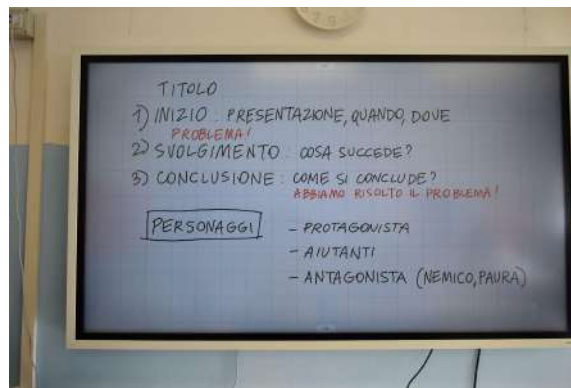 TITOLO
1) INIZIO: PRESENTAZIONE, QUANDO, DOVE
PROBLEMA!
2) SVOLGIMENTO: COSA SUCCEDE?
3) CONCLUSIONE: COME SI CONCLUDE?
ABBIAMO RISOLTO IL PROBLEMA!
PERSONAGGI - PROTAGONISTA
- AIUTANTI
- ANTAGONISTA (NEMICO, PAURA)